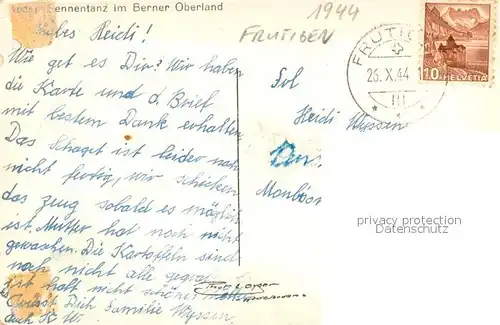 Sennentanz im Berner Oberland
1944
FRUTIGEN
Liebes Heidi!
Wie get es Dir? Wir haben
die Karte und d. Brief
mit bestem Dank erhalten
Das ist leider noch
nicht fertig, wir schicken
das zeug sobald es möglich
ist. Mutter hat noch nicht
gewaschen. Die Kartoffeln sind
noch nicht alle
ist halt nicht schönes
Grüsst Dich Familie Wyssen.
auch K. W.
FRUTIG
26.X.44
III
10 HELVETIA
Heidi Wyssen
privacy protection
www.oldthing.de